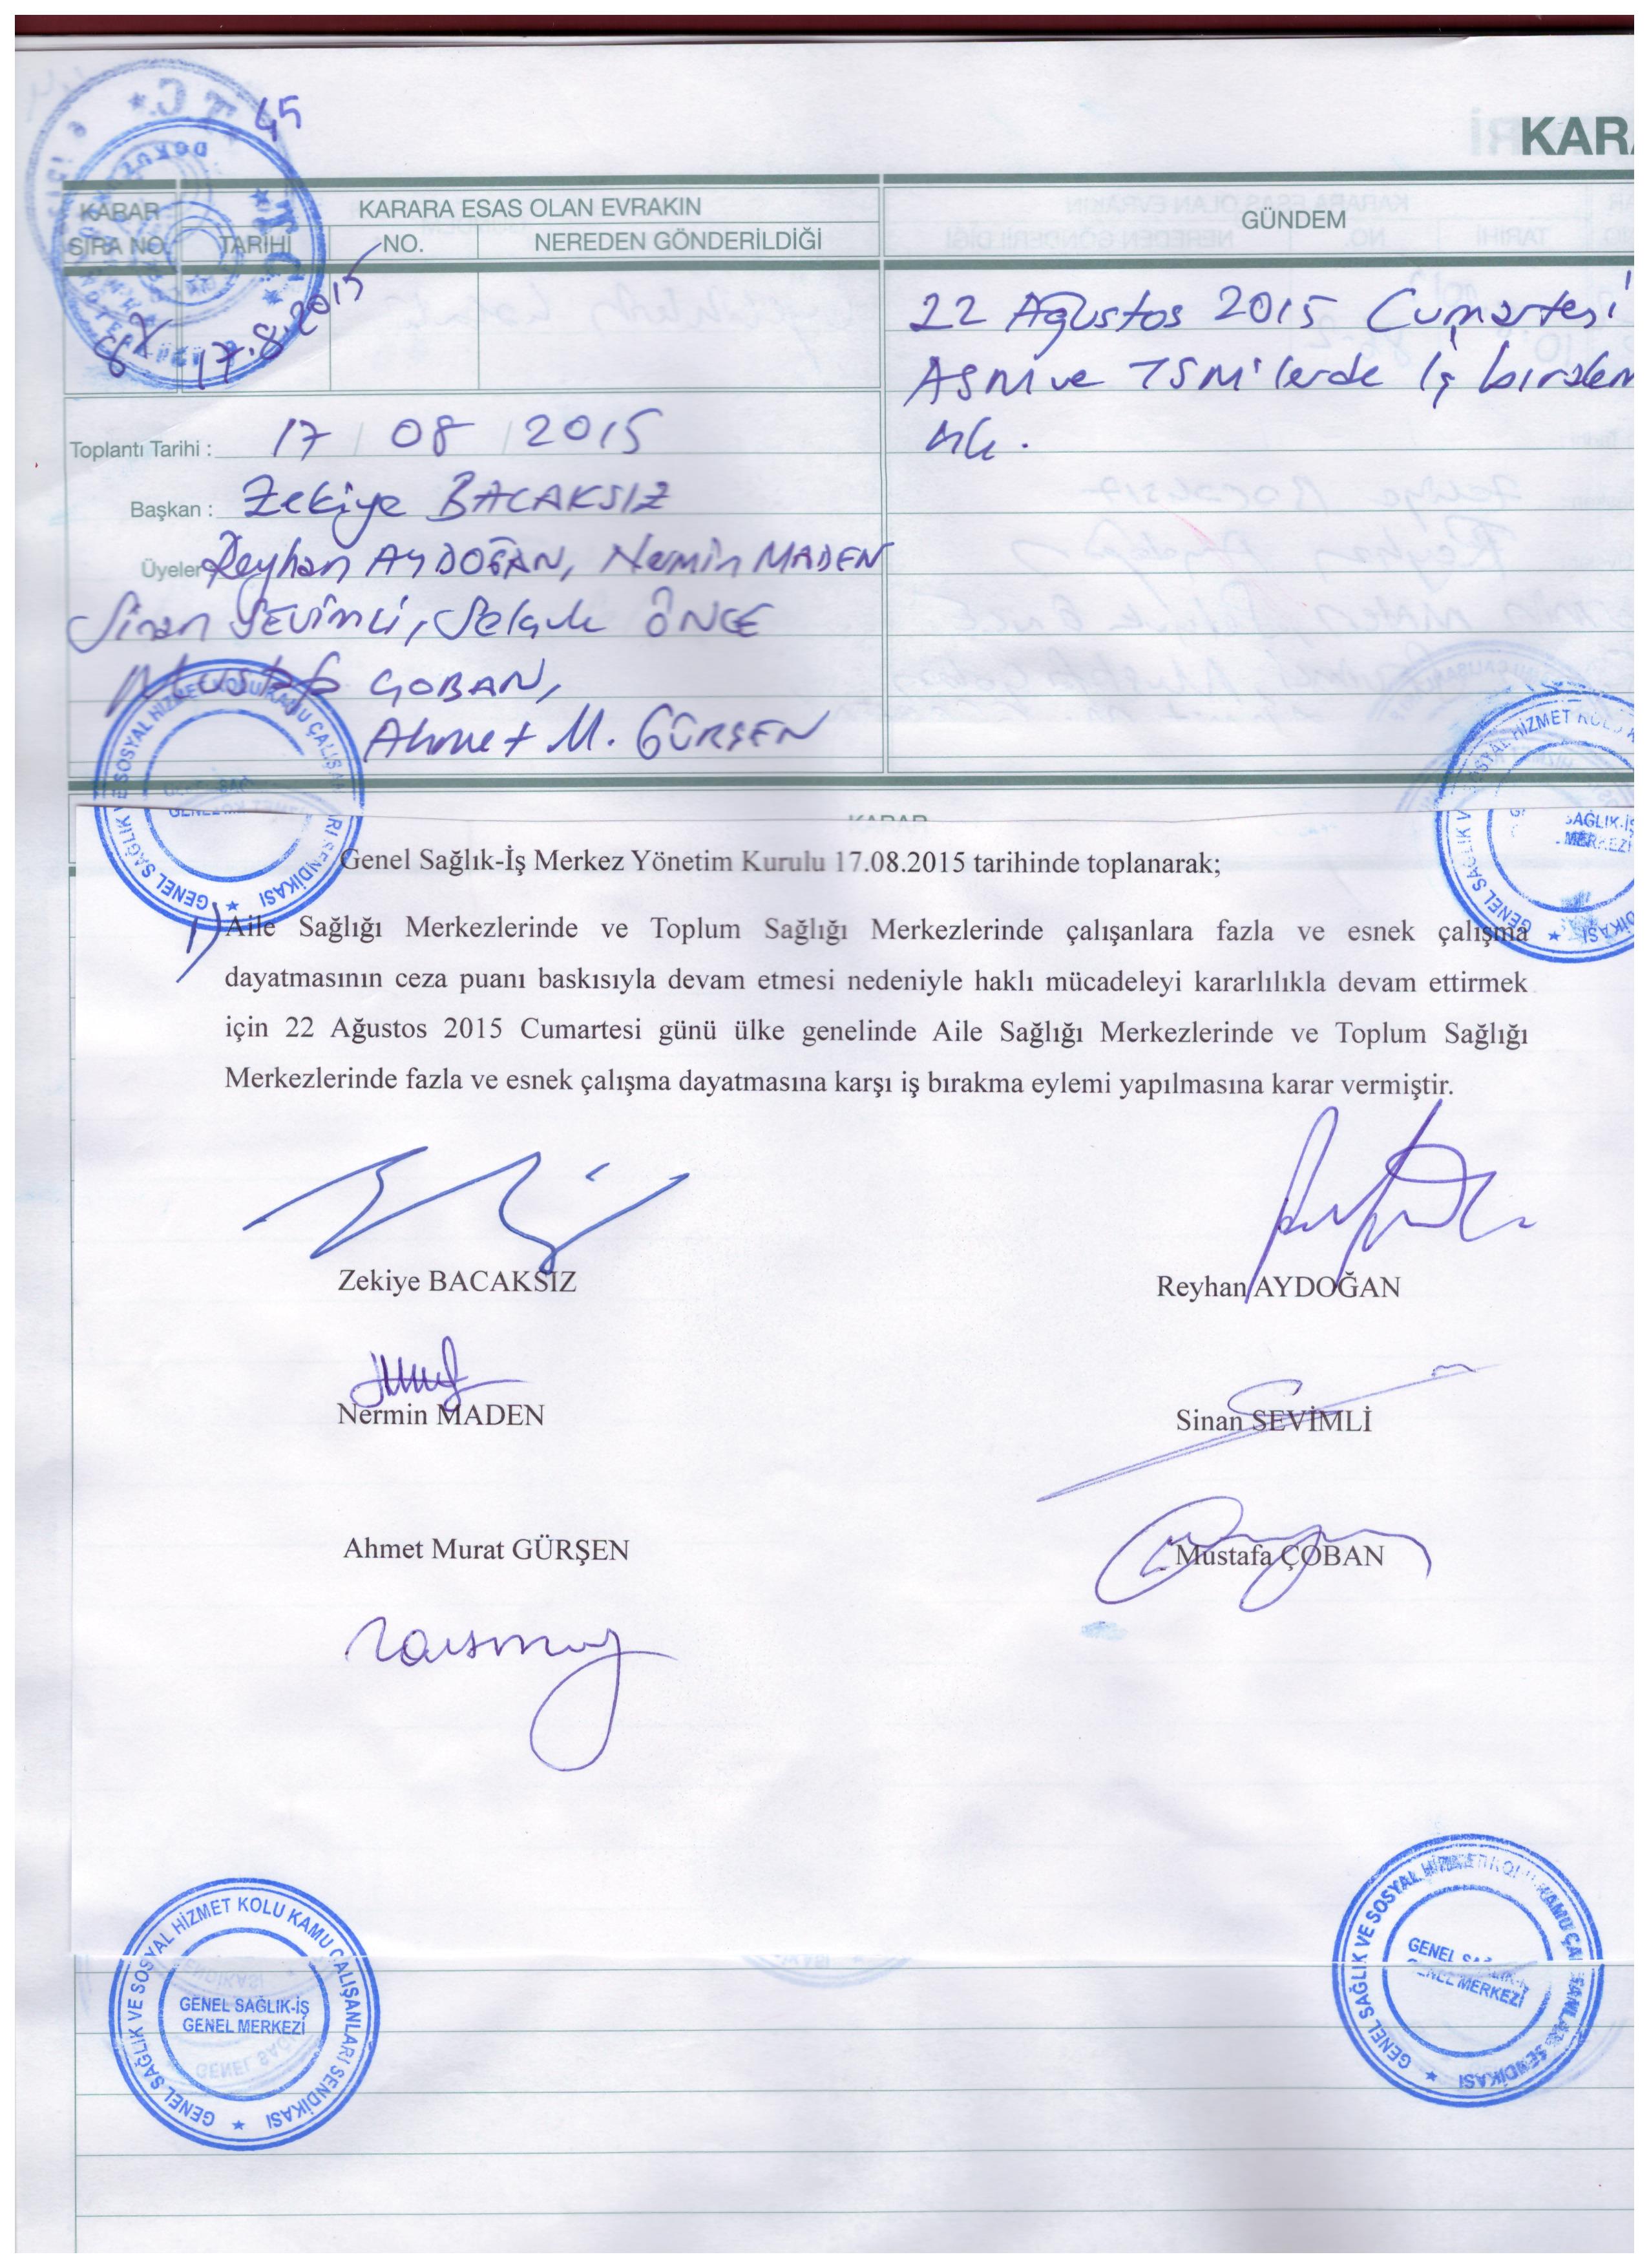 45
KAR
KARAR
SIRA NO.
KARARA ESAS OLAN EVRAKIN
TARİHİ
NO.
NEREDEN GÖNDERİLDİĞİ
GÜNDEM
17.8.2015
22 Ağustos 2015 Cumartesi
ASM ve TSM'lerde İş
Toplantı Tarihi : 17 08 2015
Başkan : Zekiye BACAKSIZ
Üyeler Reyhan AYDOĞAN, Nermin MADEN
Sinan SEVİMLİ, Selçuk ÖNCE
Mustafa ÇOBAN,
Ahmet M. GÜRŞEN
KARAR
Genel Sağlık-İş Merkez Yönetim Kurulu 17.08.2015 tarihinde toplanarak;
1) Aile Sağlığı Merkezlerinde ve Toplum Sağlığı Merkezlerinde çalışanlara fazla ve esnek çalışma
dayatmasının ceza puanı baskısıyla devam etmesi nedeniyle haklı mücadeleyi kararlılıkla devam ettirmek
için 22 Ağustos 2015 Cumartesi günü ülke genelinde Aile Sağlığı Merkezlerinde ve Toplum Sağlığı
Merkezlerinde fazla ve esnek çalışma dayatmasına karşı iş bırakma eylemi yapılmasına karar vermiştir.
Zekiye BACAKSIZ
Reyhan AYDOĞAN
Nermin MADEN
Sinan SEVİMLİ
Ahmet Murat GÜRŞEN
Mustafa ÇOBAN
GENEL SAĞLIK VE SOSYAL HİZMET KOLU KAMU ÇALIŞANLARI SENDİKASI
GENEL SAĞLIK-İŞ
GENEL MERKEZİ
GENEL SAĞLIK VE SOSYAL HİZMET KOLU KAMU ÇALIŞANLARI SENDİKASI
GENEL MERKEZİ